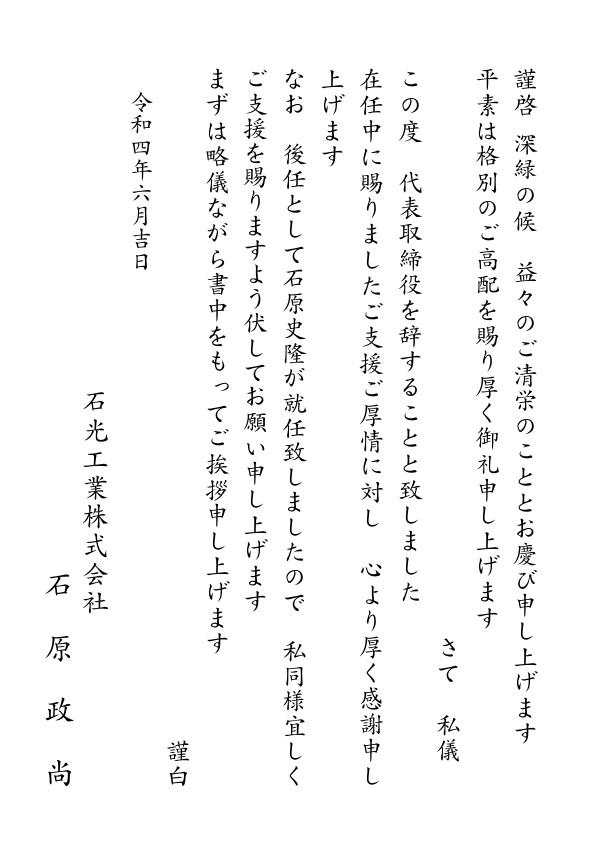 謹啓 深緑の候 益々のご清栄のこととお慶び申し上げます
平素は格別のご高配を賜り厚く御礼申し上げます
さて 私儀
この度 代表取締役を辞することと致しました
在任中に賜りましたご支援ご厚情に対し 心より厚く感謝申し
上げます
なお 後任として石原史隆が就任致しましたので 私同様宜しく
ご支援を賜りますよう伏してお願い申し上げます
まずは略儀ながら書中をもってご挨拶申し上げます
謹白
令和四年六月吉日
石光工業株式会社
石原政尚